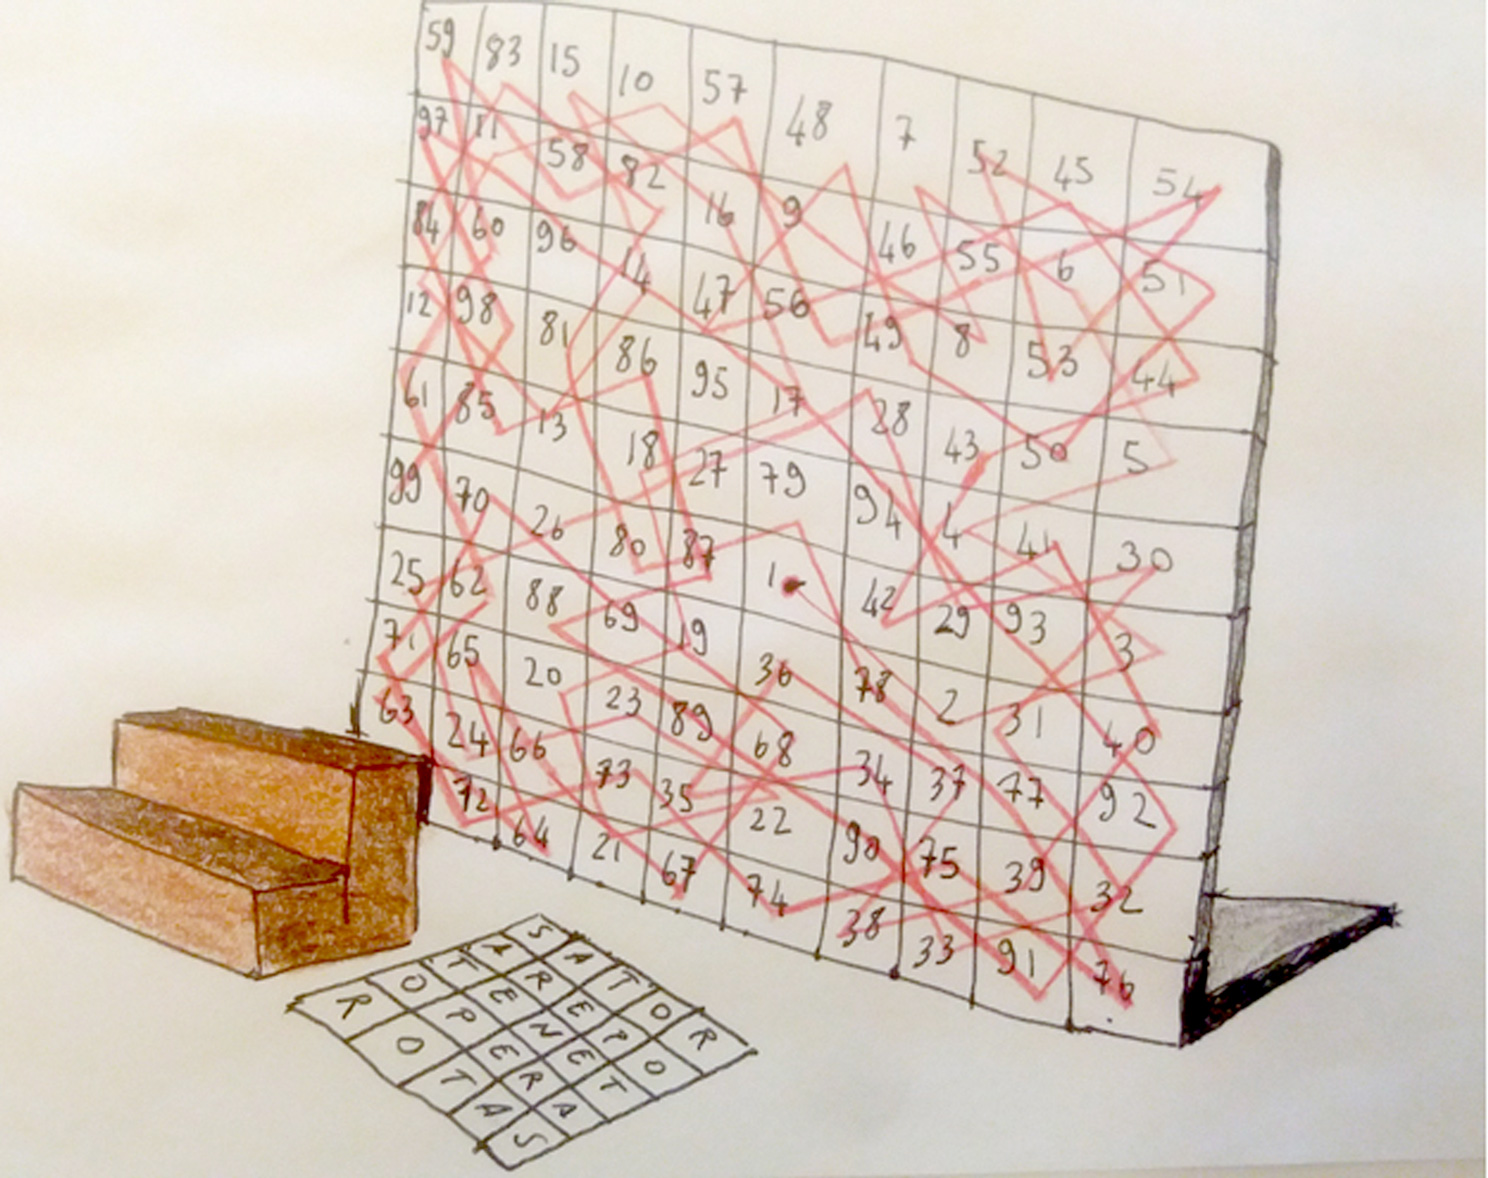 59 83 15 10 57 48 7 52 45 54
97 11 58 82 16 9 46 55 6 51
84 60 96 14 47 56 49 8 53 44
12 98 81 86 95 17 28 43 50 5
61 85 13 18 27 79 94 4 41 30
99 70 26 80 87 1 42 29 93 3
25 62 88 69 19 36 78 2 31 40
71 65 20 23 89 68 34 37 77 92
63 24 66 73 35 22 90 75 39 32
72 64 21 67 74 38 33 91 76
S A T O R
A R E P O
T E N E T
O P E R A
R O T A S